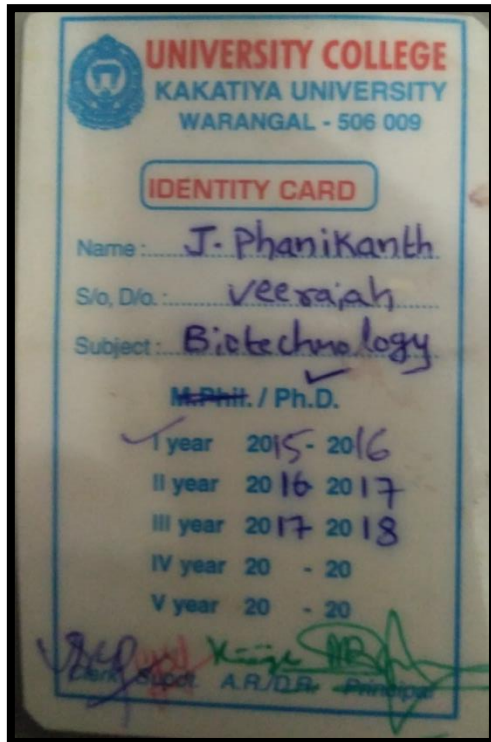 UNIVERSITY COLLEGE
KAKATIYA UNIVERSITY
WARANGAL - 506 009
IDENTITY CARD
Name : J. Phanikanth
S/o, D/o. : Veeraiah
Subject : Biotechnology
M.Phil. / Ph.D.
I year 2015 - 2016
II year 2016 2017
III year 2017 2018
IV year 20 - 20
V year 20 - 20
Clerk Supdt. A.R./D.R. Principal